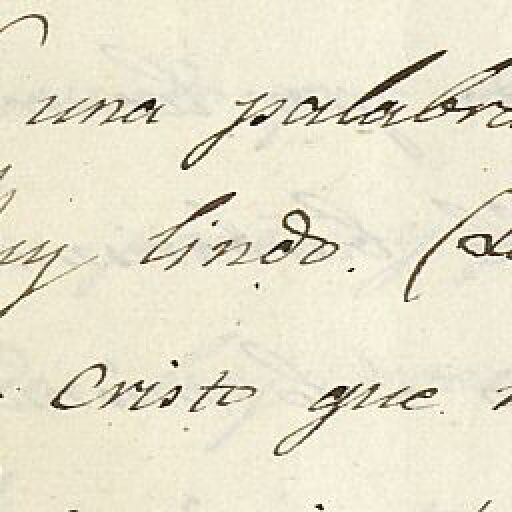 una palabra
muy lindo. (
Cristo que